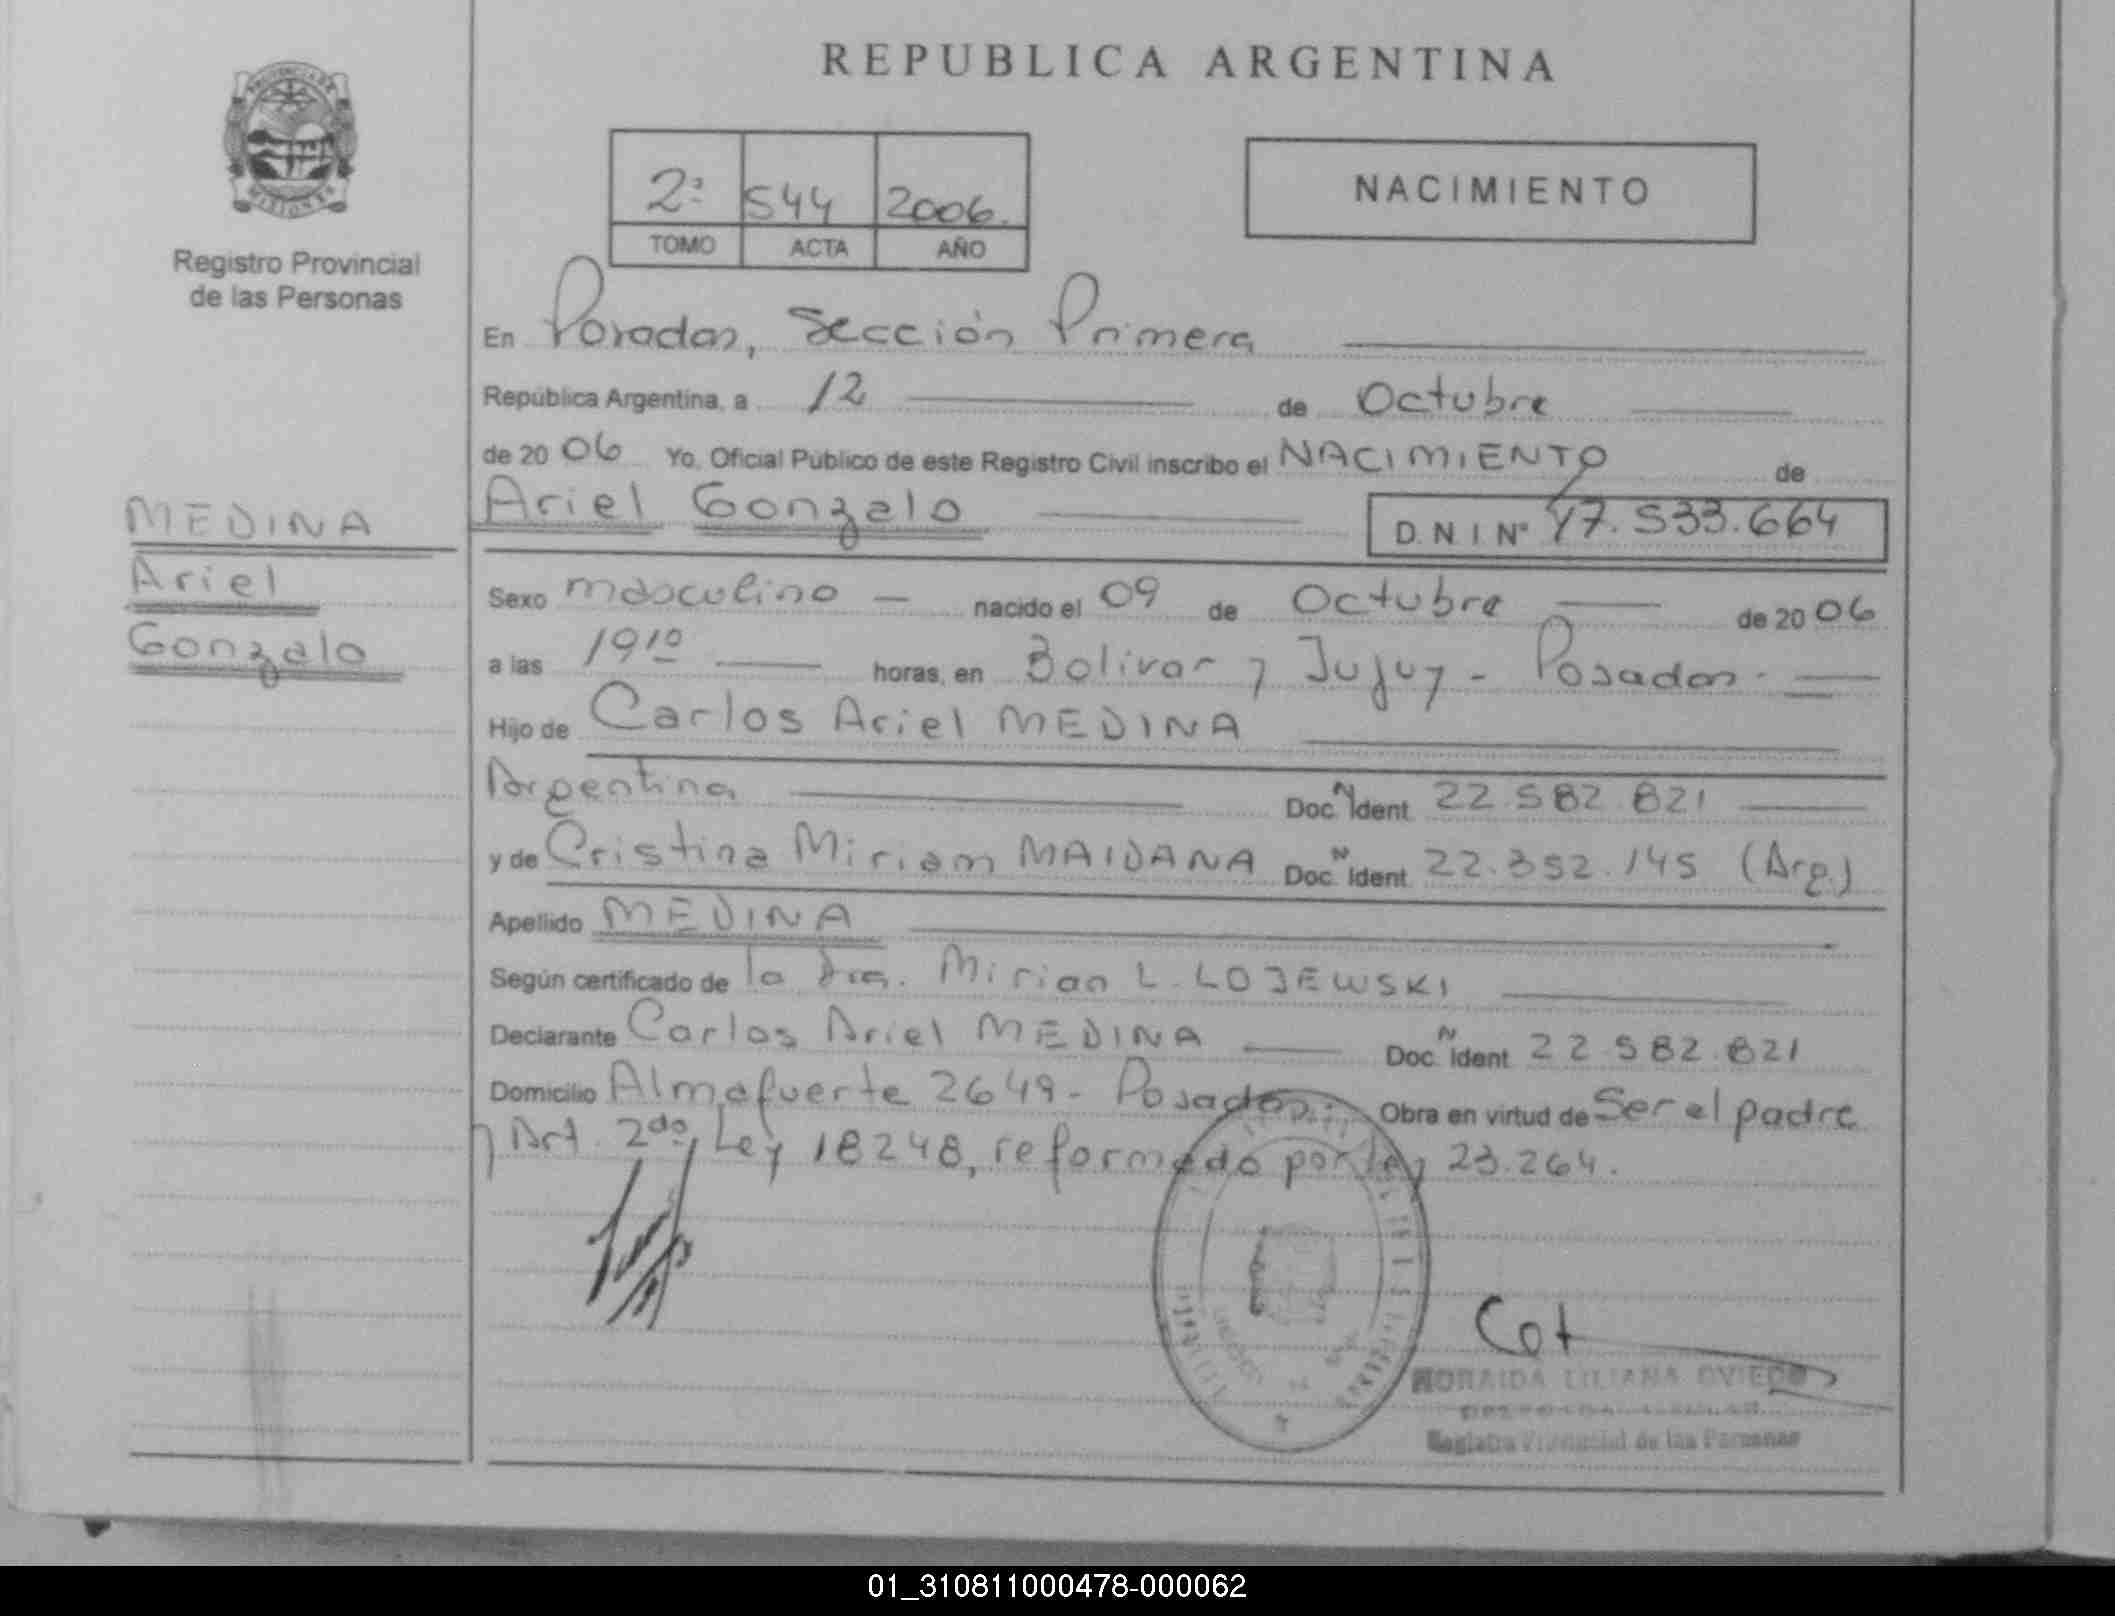 REPUBLICA ARGENTINA
PROVINCIA DE
MISIONES
Registro Provincial
de las Personas
2ª 544 2006.
TOMO ACTA AÑO
NACIMIENTO
En Posadas, Sección Primera
República Argentina, a 12 de Octubre
de 20 06 Yo, Oficial Público de este Registro Civil inscribo el NACIMIENTO de
Ariel Gonzalo
D.N.I Nº 47.533.664
MEDINA
Ariel
Gonzalo
Sexo masculino nacido el 09 de Octubre de 20 06
a las 19¹⁰ horas, en Bolivar y Jujuy - Posadas.
Hijo de Carlos Ariel MEDINA
Argentina Doc. N Ident. 22.582.821
y de Cristina Miriam MAIDANA Doc. N Ident. 22.352.145 (Arg.)
Apellido MEDINA
Según certificado de la Dra. Mirian L. LOJEWSKI
Declarante Carlos Ariel MEDINA Doc. N Ident. 22.582.821
Domicilio Almafuerte 2649 - Posadas. Obra en virtud de Ser el padre
y Art. 2do, Ley 18248, reformado por ley 23.264.
LILIANA OVIEDO
Registro Provincial de las Personas
01_310811000478-000062